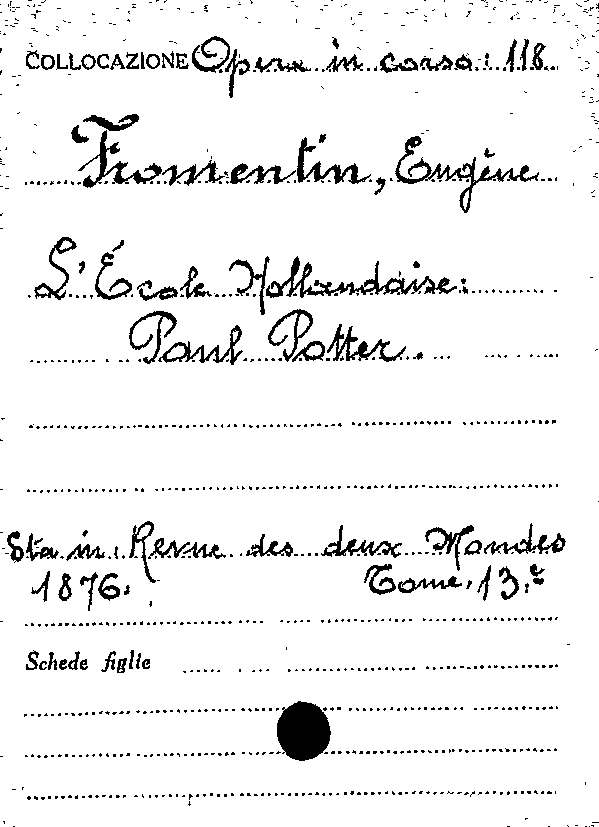 COLLOCAZIONE Opera in corso: 118
Fromentin, Eugène
L'École Hollandaise:
Paul Potter.
Sta in: Revue des deux Mondes
1876. Tome. 13.e
Schede figlie